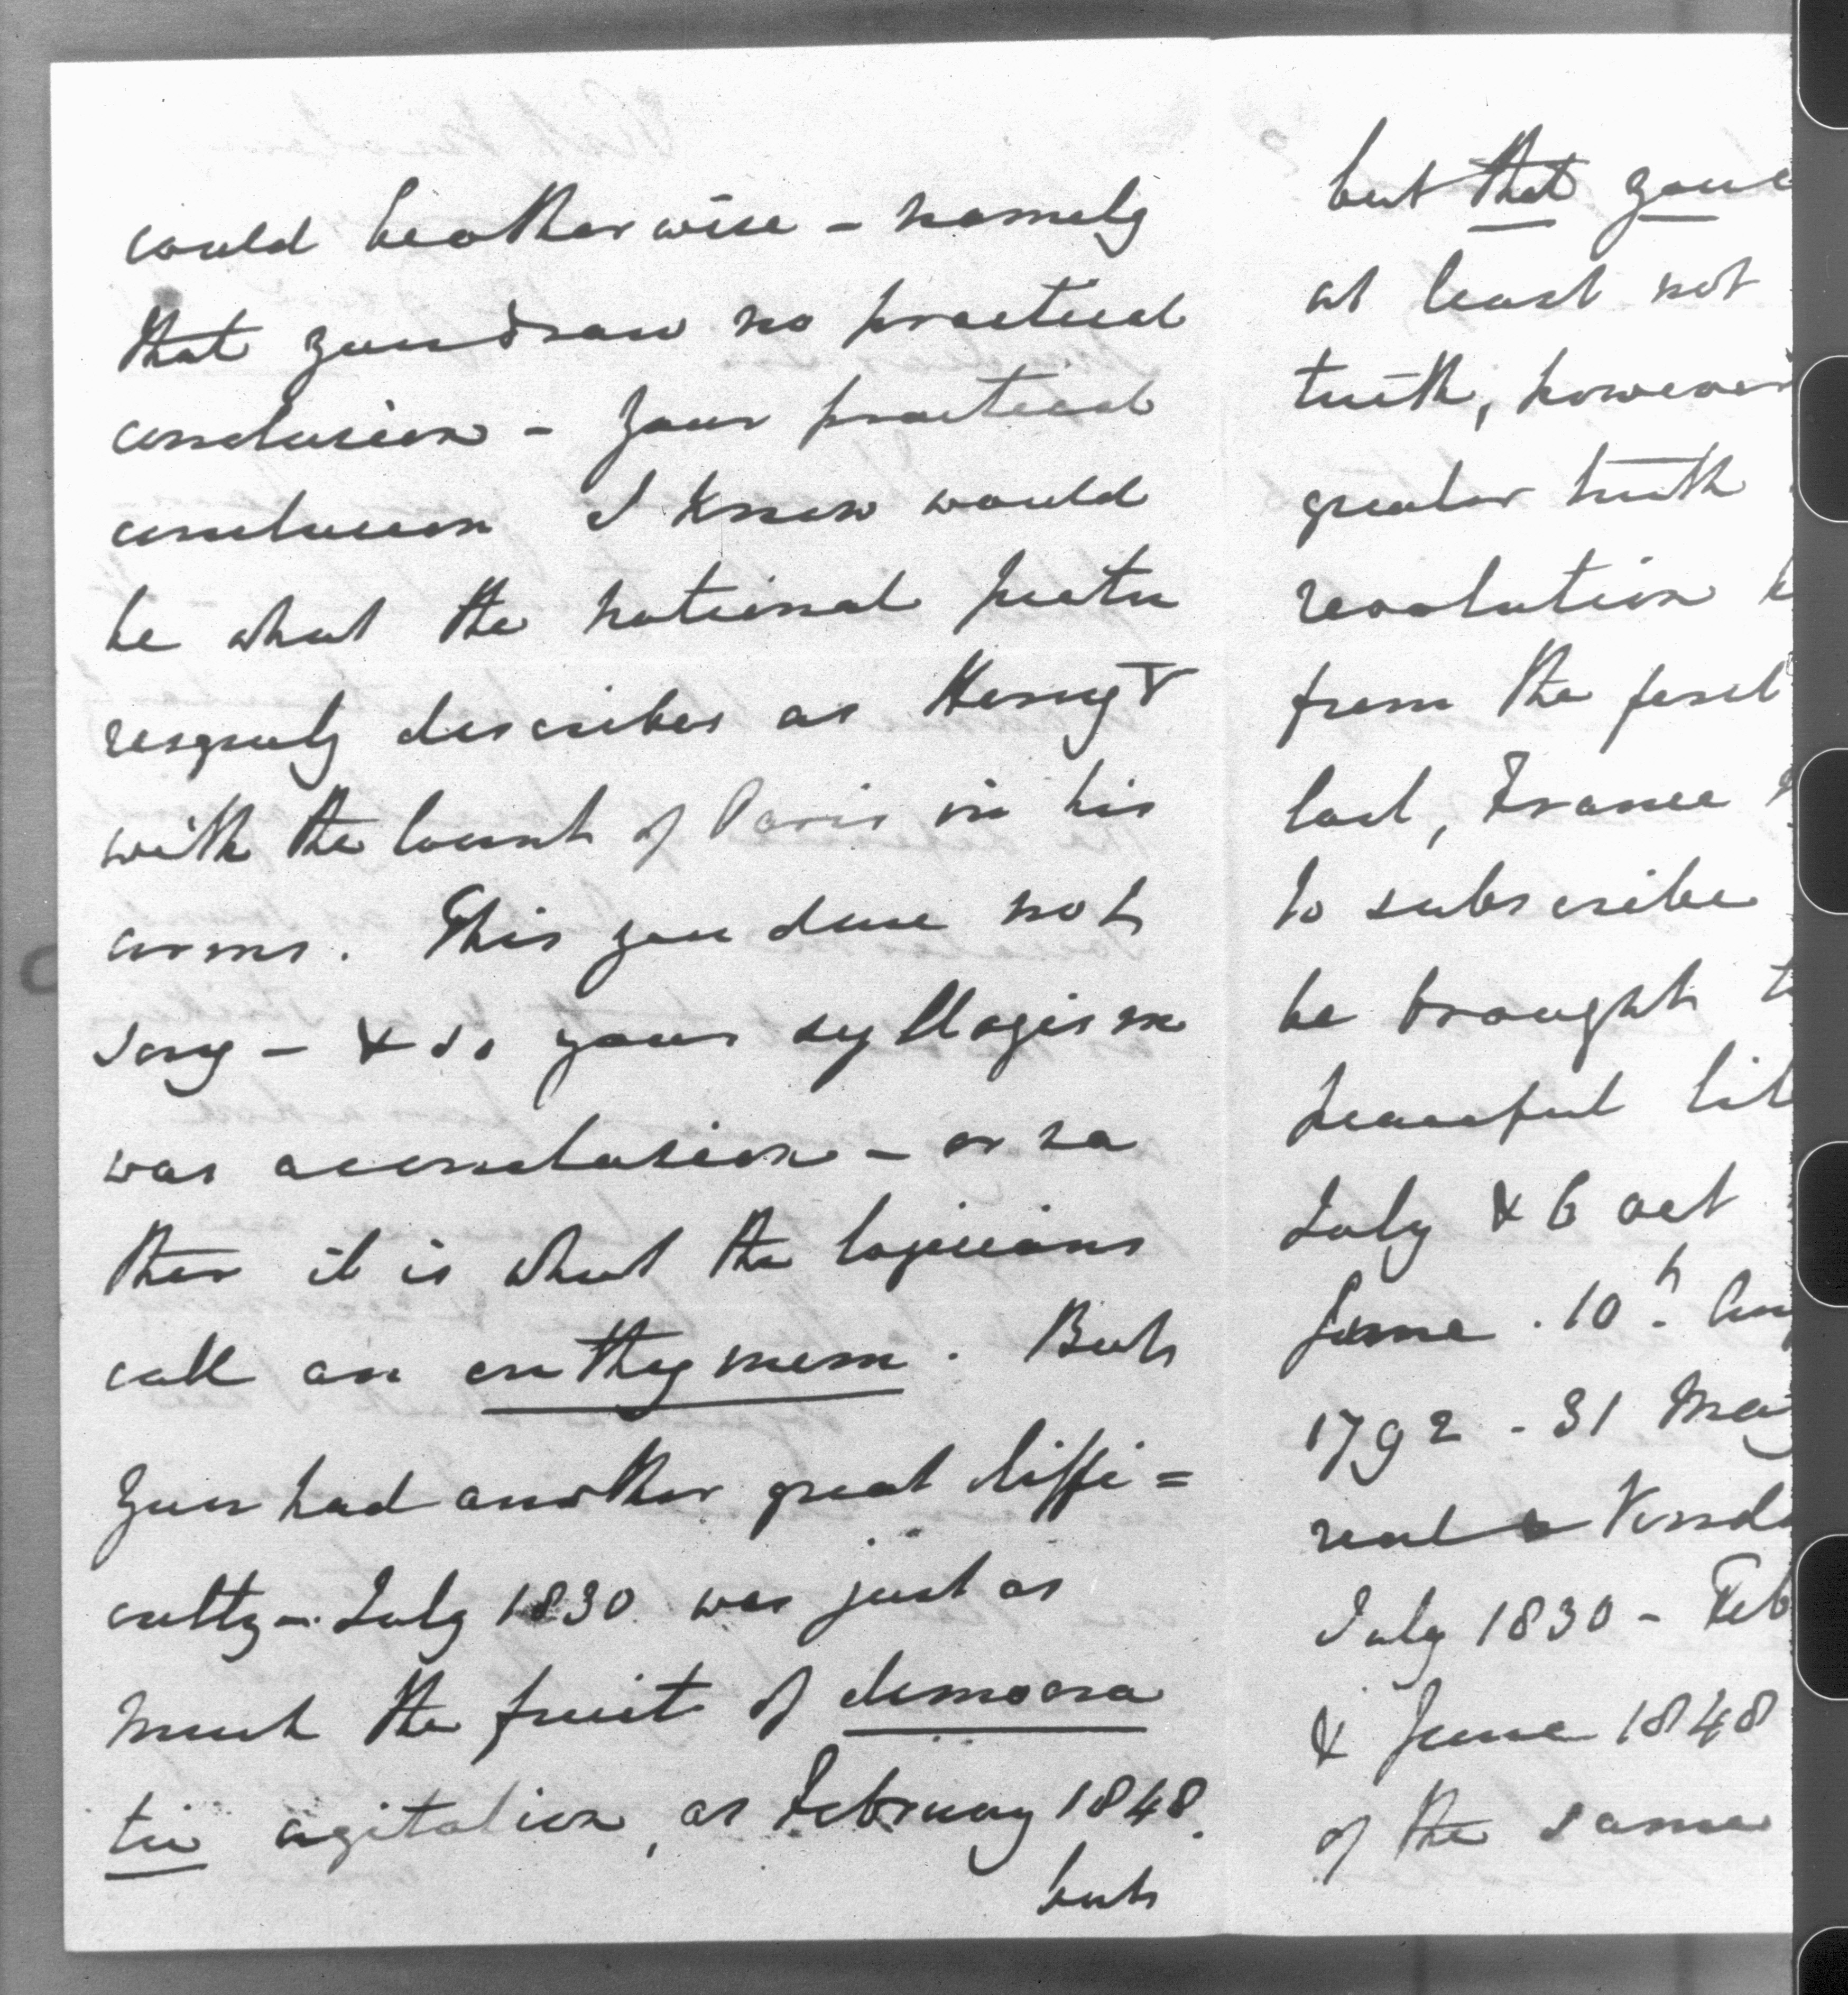 could be otherwise - namely
that you draw no practical
conclusion - your practical
conclusion I know would
be what the national pictu
resquely describes as Henry V
with the Count of Paris in his
arms. This you dare not
say - & so your syllogism
was a conclusion - or ra
ther it is what the logicians
call an enthymem. But
you had another great diffi=
culty - July 1830 was just as
much the fruit of democra
tic agitation, as February 1848.
but
but that you
at least not
truth, however
greater truth
revolution
from the first
last, France
to subscribe
be brought t
peaceful lib
July & 6 oct
June. 10th Aug
1792 - 31 May
real Vend
July 1830 - Feb
& June 1848
of the same